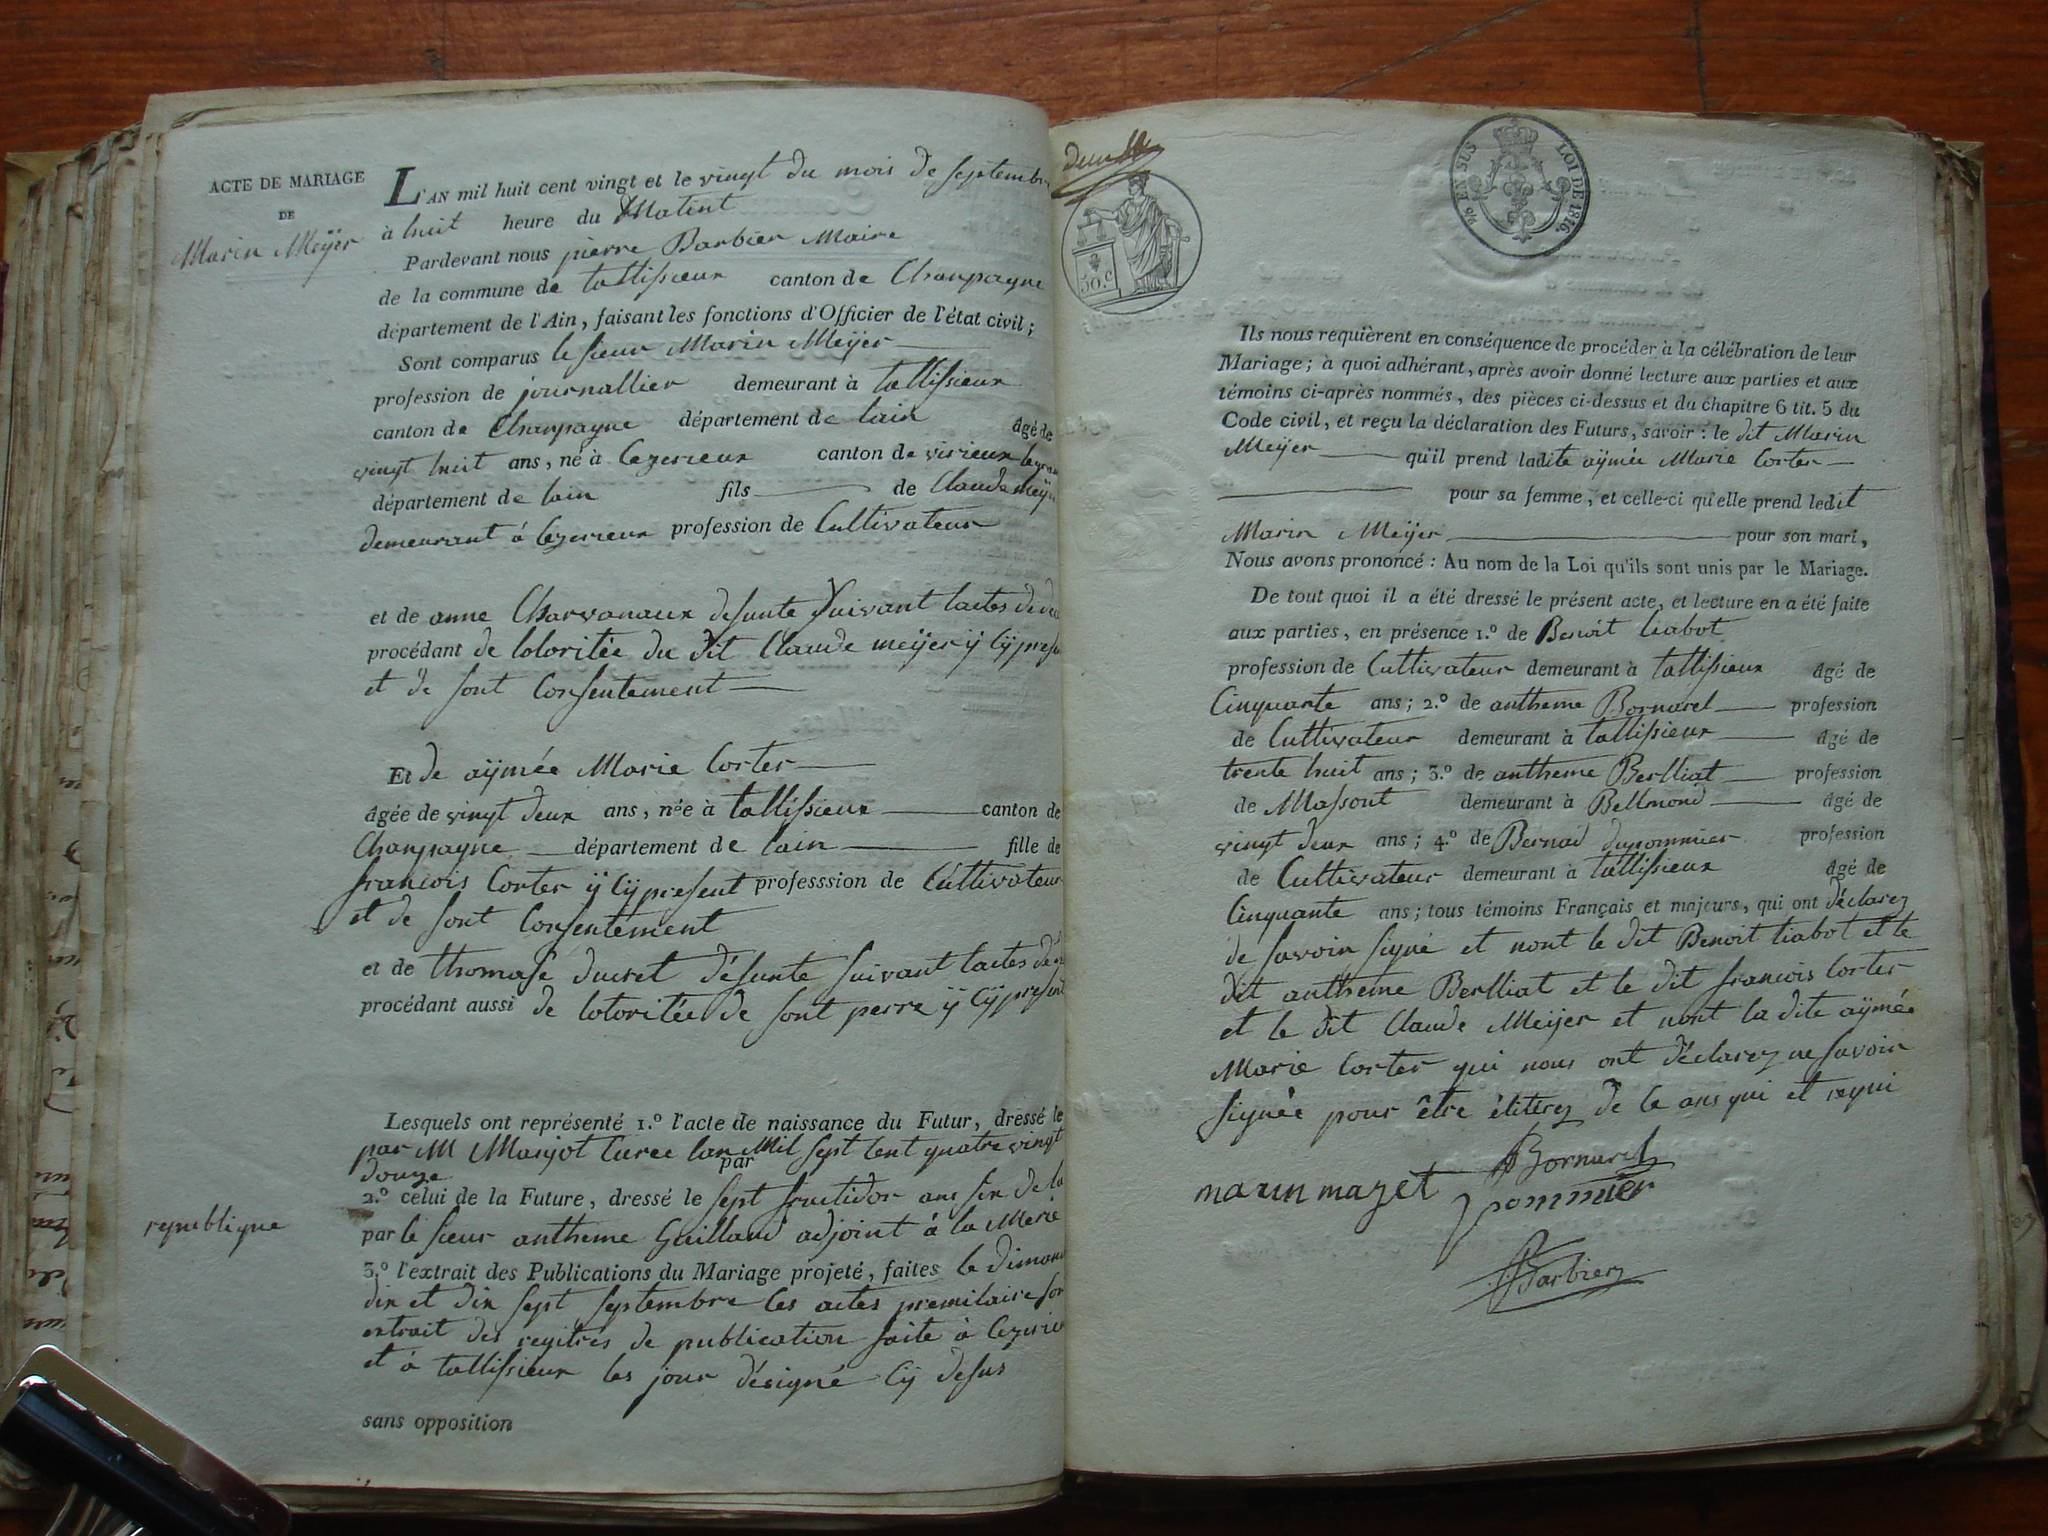 ACTE DE MARIAGE
DE
Marin Meÿer
L'AN mil huit cent vingt et le vingt du mois de septembre
à huit heure du Matint
Pardevant nous pierre Barbier Maire
de la commune de tallissieux canton de Chanpagne
département de l'Ain, faisant les fonctions d'Officier de l'état civil;
Sont comparus le sieur Marin Meÿer
profession de journallier demeurant à tallissieux
canton de Chanpagne département de lain âgé de
vingt huit ans, né à Cezerieux canton de virieux legran
département de lain fils de Claude Meÿer
demeurant à Cezerieux profession de Cultivateur
et de anne Charvanaux defunte suivant lactes de
procédant de lotoritée du dit Claude meÿer ÿ Cÿ present
et de sont Consentement
Et de aÿmée Marie Corter
âgée de vingt deux ans, née à tallissieux canton de
Chanpagne département de lain fille de
francois Corter ÿ Cÿ present professsion de Cultivateur
et de sont Consentement
et de thomase ducret défunte suivant lactes de
procédant aussi de lotoritée de sont perre ÿ Cÿ present
Lesquels ont représenté 1.º l'acte de naissance du Futur, dressé le
par M Marjot Curee lan Mil sept cent quatre vingt
par
douze
2.º celui de la Future, dressé le sept fructidor ans six de la
republique
par le sieur antheme Guilland adjoint à la Merie
3.º l'extrait des Publications du Mariage projeté, faites le dimanche
dix et dix sept septembre les actes premilaire son
extrait des regitres de publication faite à Cezerieux
et à tallissieux les jour désigné Cÿ desus
sans opposition
50.c
96 EN SUS LOI DE 1816.
Ils nous requièrent en conséquence de procéder à la célébration de leur
Mariage; à quoi adhérant, après avoir donné lecture aux parties et aux
témoins ci-après nommés, des pièces ci-dessus et du chapitre 6 tit. 5 du
Code civil, et reçu la déclaration des Futurs, savoir: le dit Marin
Meÿer qu'il prend ladite aÿmée Marie Corter
pour sa femme, et celle-ci qu'elle prend ledit
Marin Meÿer pour son mari,
Nous avons prononcé: Au nom de la Loi qu'ils sont unis par le Mariage.
De tout quoi il a été dressé le présent acte, et lecture en a été faite
aux parties, en présence 1.º de Benoit liabot
profession de Cultivateur demeurant à tallissieux âgé de
Cinquante ans; 2.º de antheme Bornarel profession
de Cultivateur demeurant à tallissieux âgé de
trente huit ans; 3.º de antheme Berlliat profession
de Massont demeurant à Bellmond âgé de
vingt deux ans; 4.º de Bernad dupommier profession
de Cultivateur demeurant à tallissieux âgé de
Cinquante ans; tous témoins Français et majeurs, qui ont déclarez
de savoir signé et nont le dit Benoit liabot et le
dit antheme Berlliat et le dit francois Corter
et le dit Claude Meÿer et nont la dite aÿmée
Marie Corter qui nous ont déclarez ne savoir
signée pour être de ce
Bornarel
marin mazet
pommier
Barbier